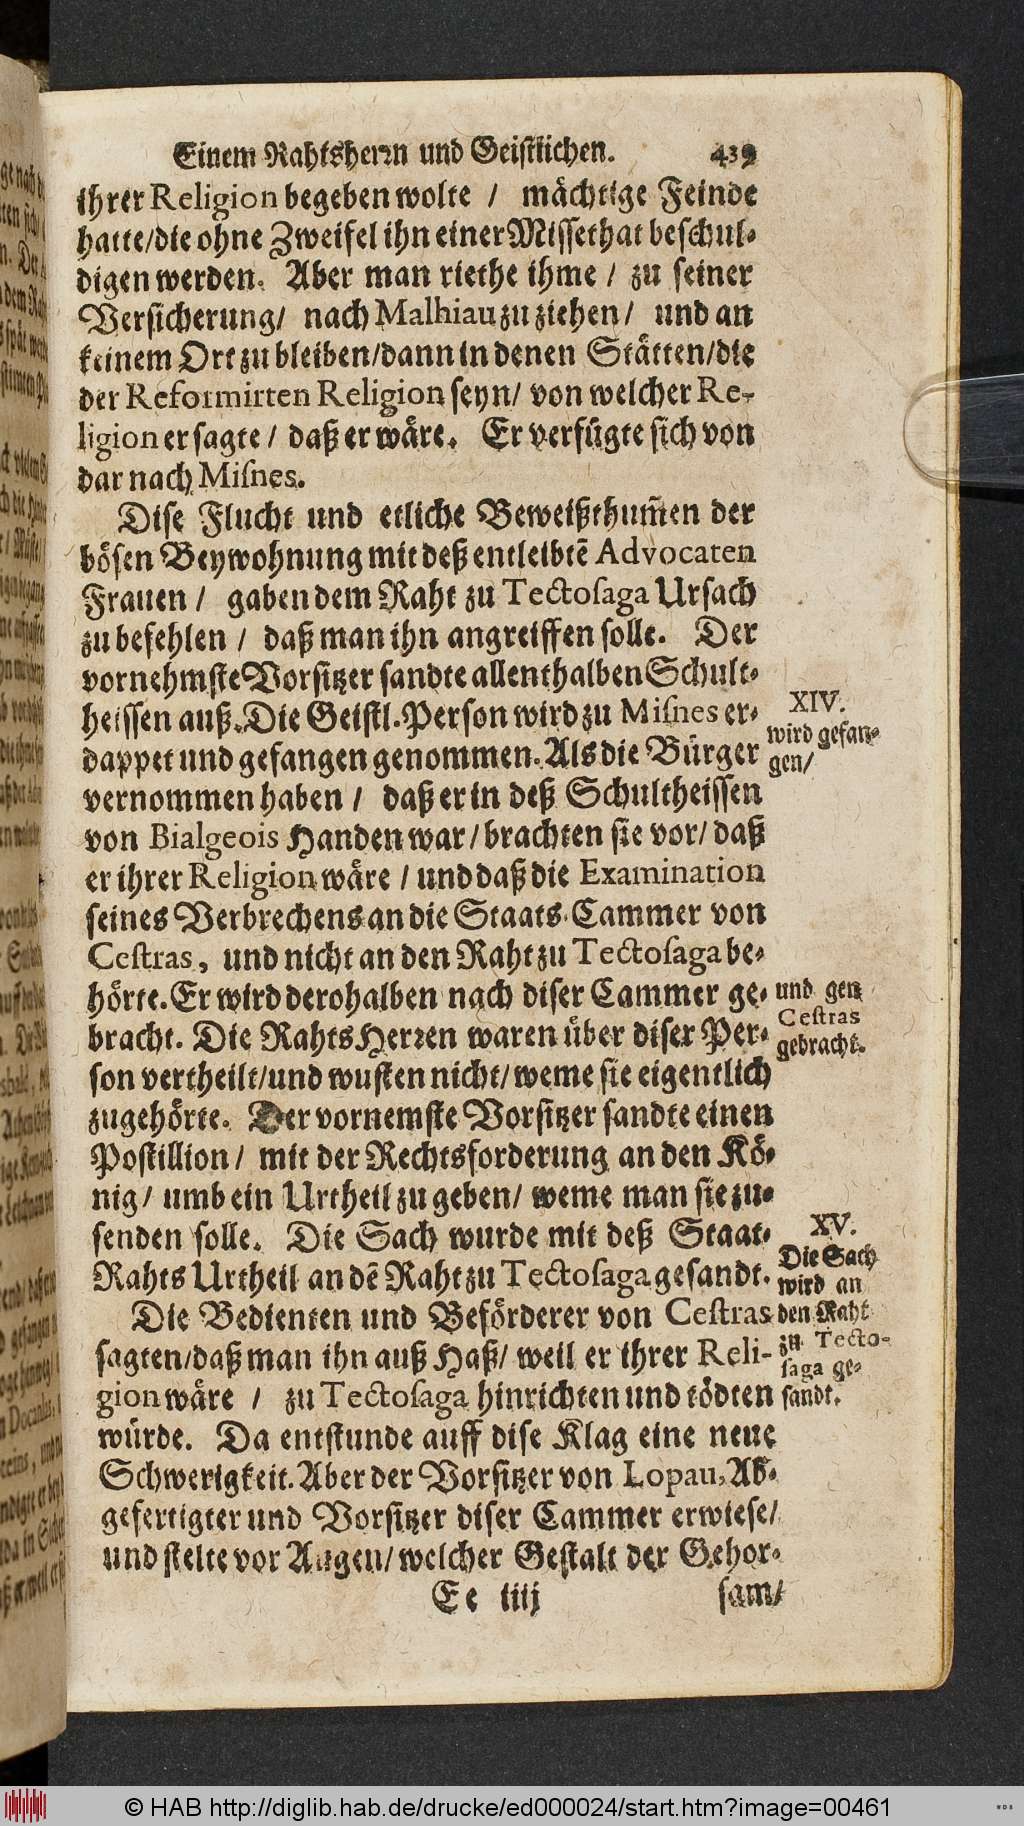 Einem Rahtsherrn und Geistlichen. 439
ihrer Religion begeben wolte / mächtige Feinde
hatte/die ohne Zweifel ihn einer Missethat beschul-
digen werden. Aber man riethe ihme / zu seiner
Versicherung/ nach Malhiau zu ziehen/ und an
keinem Ort zu bleiben/dann in denen Stätten/die
der Reformirten Religion seyn/ von welcher Re-
ligion er sagte / daß er wäre. Er verfügte sich von
dar nach Miſnes.
Dise Flucht und etliche Beweißthum̃en der
bösen Beywohnung mit deß entleibtẽ Advocaten
Frauen / gaben dem Raht zu Tectoſaga Ursach
zu befehlen / daß man ihn angreiffen solle. Der
vornehmste Vorsitzer sandte allenthalben Schult-
heissen auß. Die Geistl. Person wird zu Miſnes er-
dappet und gefangen genommen. Als die Bürger
vernommen haben / daß er in deß Schultheissen
von Bialgeois Handen war/brachten sie vor/ daß
er ihrer Religion wäre / und daß die Examination
seines Verbrechens an die Staats-Cammer von
Ceſtras, und nicht an den Raht zu Tectoſaga be-
hörte. Er wird derohalben nach diser Cammer ge-
bracht. Die Rahts Herren waren über diser Per-
son vertheilt/und wusten nicht/weme sie eigentlich
zugehörte. Der vornemste Vorsitzer sandte einen
Postillion/ mit der Rechtsforderung an den Kö-
nig/ umb ein Urtheil zu geben/ weme man sie zu-
senden solle. Die Sach wurde mit deß Staat-
Rahts Urtheil an dẽ Raht zu Tectoſaga gesandt.
Die Bedienten und Beförderer von Ceſtras
sagten/daß man ihn auß Haß/ weil er ihrer Reli-
gion wäre / zu Tectoſaga hinrichten und tödten
würde. Da entstunde auff dise Klag eine neue
Schwerigkeit. Aber der Vorsitzer von Lopau, Ab-
gefertigter und Vorsitzer diser Cammer erwiese/
und stelte vor Augen/welcher Gestalt der Gehor-
Ee iiij sam/
XIV.
wird gefan-
gen/
und gen
Ceſtras
gebracht.
XV.
Die Sach
wird an
den Raht
zu Tecto-
ſaga ge-
sandt.
© HAB http://diglib.hab.de/drucke/ed000024/start.htm?image=00461